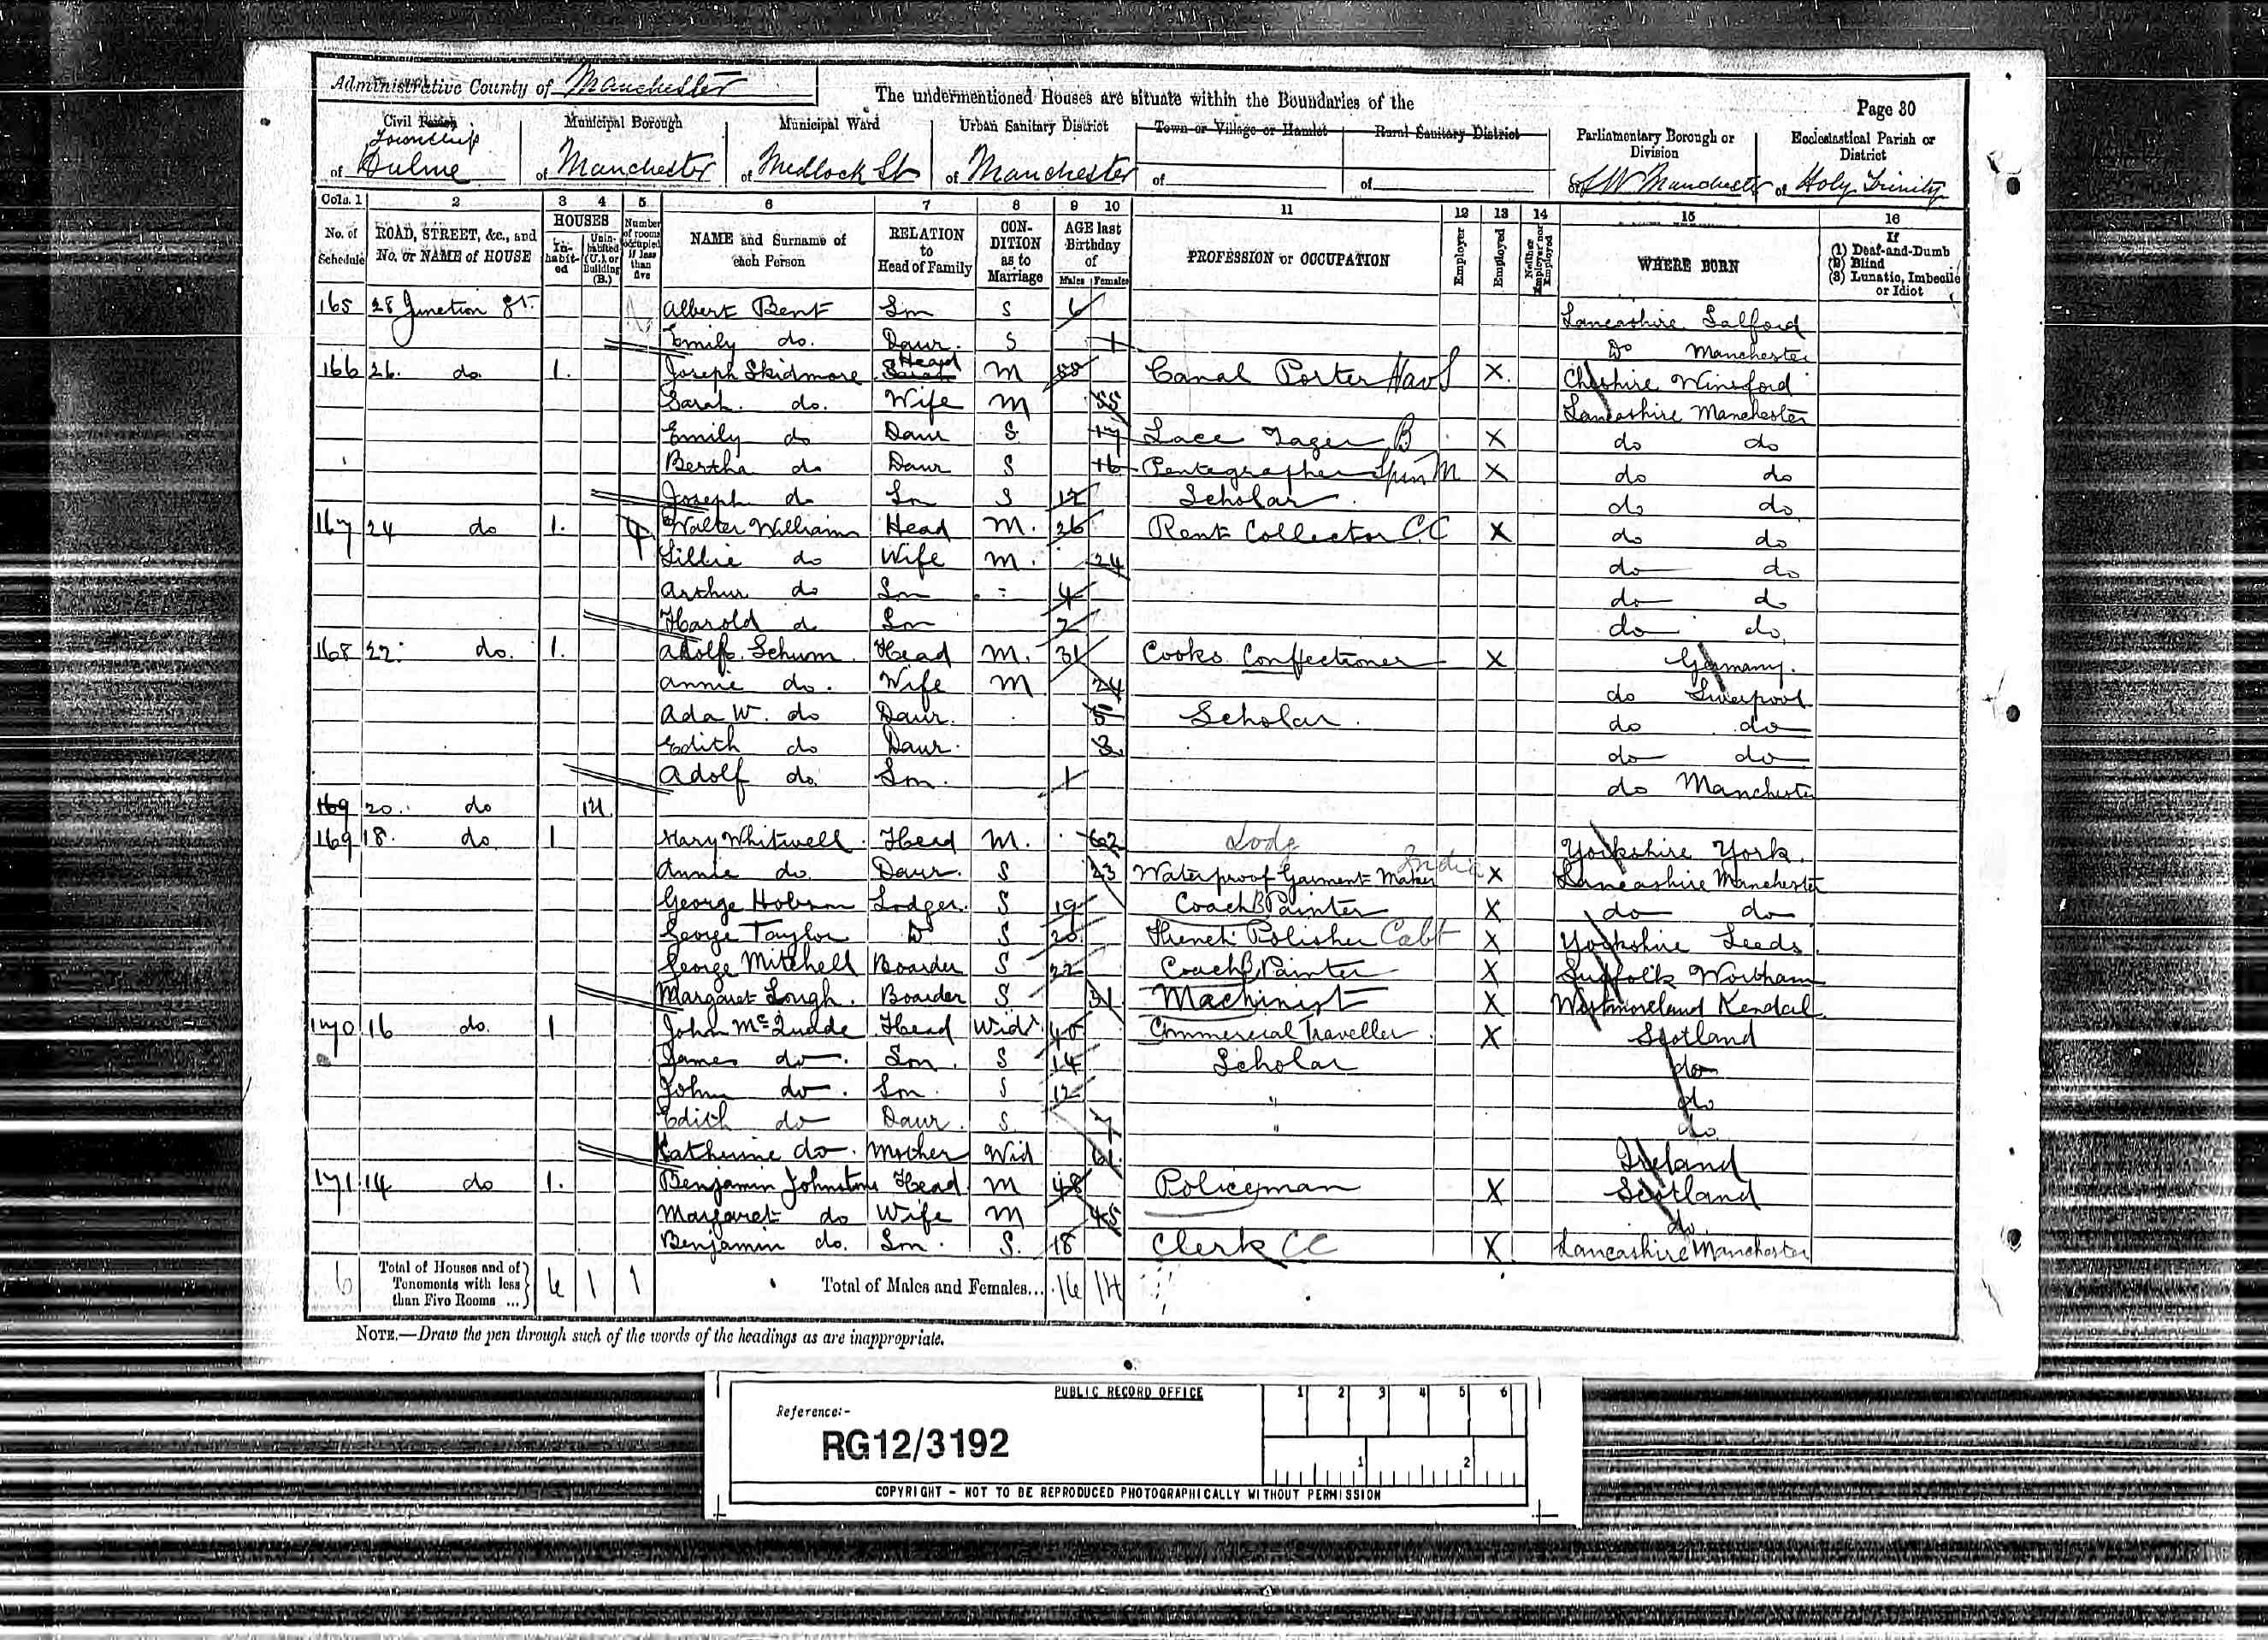 Administrative County of Manchester
The undermentioned Houses are situate within the Boundaries of the
Page 30
Civil Parish Township of Hulme
Municipal Borough of Manchester
Municipal Ward of Medlock St
Urban Sanitary District of Manchester
Town or Village or Hamlet of
Rural Sanitary District of
Parliamentary Borough or Division of SW Manchester
Ecclesiastical Parish or District of Holy Trinity
Cols. 1 2 3 4 5 6 7 8 9 10 11 12 13 14 15 16
No. of Schedule
ROAD, STREET, &c., and No. or NAME of HOUSE
HOUSES
In-habit-ed
Unin-habited (U.), or Building (B.)
Number of rooms occupied if less than five
NAME and Surname of each Person
RELATION to Head of Family
CON-DITION as to Marriage
AGE last Birthday of
Males Females
PROFESSION or OCCUPATION
Employer
Employed
Neither Employer nor Employed
WHERE BORN
If (1) Deaf-and-Dumb (2) Blind (3) Lunatic, Imbecile or Idiot
165 28 Junction St. Albert Bent Son S 6 Lancashire Salford
Emily do. Daur. S 1 Do Manchester
166 26. do. 1. Joseph Skidmore Head M Canal Porter Nav X. Cheshire Winsford
Sarah. do. Wife M 55 Lancashire Manchester
Emily do Daur S 17 Lace B X do do
Bertha do Daur S 16 Pentographer M X do do
Joseph do Son S 12 Scholar do do
167 24 do 1. 4 Walter Williams Head M. 26 Rent Collector CC X do do
Lillie do Wife M. 24 do do
Arthur do Son 4 do do
Harold do Son 2 do do
168 22. do. 1. Adolf Schum Head M. 31 Cooks Confectioner X Germany.
Annie do. Wife M 24 do Liverpool
Ada W. do Daur. 5 Scholar. do do
Edith do Daur. 3 do do
Adolf do. Son. 1 do Manchester
169 20. do 1U
169 18. do. 1 Mary Whitwell. Head M. 62 Lodg Yorkshire York.
Annie do. Daur. S 23 Waterproof Garment Maker India X Lancashire Manchester
George Hobson Lodger. S 19 Coach Painter X do do
George Taylor Do S 20 French Polisher Cabt X Yorkshire Leeds
George Mitchell Boarder S 22 Coach Painter X Suffolk
Margaret Lough. Boarder S 31 Machinist X Westmoreland Kendal
170 16 do. 1 John Head Widr 40 Commercial Traveller. X Scotland
James do. Son. S 14 Scholar do
John do. Son. S 12 " do
Edith do Daur. S. 7 " do
Katherine do. Mother Wid 61. Ireland
171 14 do 1. Benjamin Johnstone Head M 48 Policeman X Scotland
Margaret do Wife M 45 do
Benjamin do. Son. S. 18 Clerk CC X Lancashire Manchester
6 Total of Houses and of Tenements with less than Five Rooms ... 6 1 1 Total of Males and Females... 16 14
NOTE.—Draw the pen through such of the words of the headings as are inappropriate.
PUBLIC RECORD OFFICE
1 2 3 4 5 6
Reference:-
RG12/3192
1 2
COPYRIGHT - NOT TO BE REPRODUCED PHOTOGRAPHICALLY WITHOUT PERMISSION